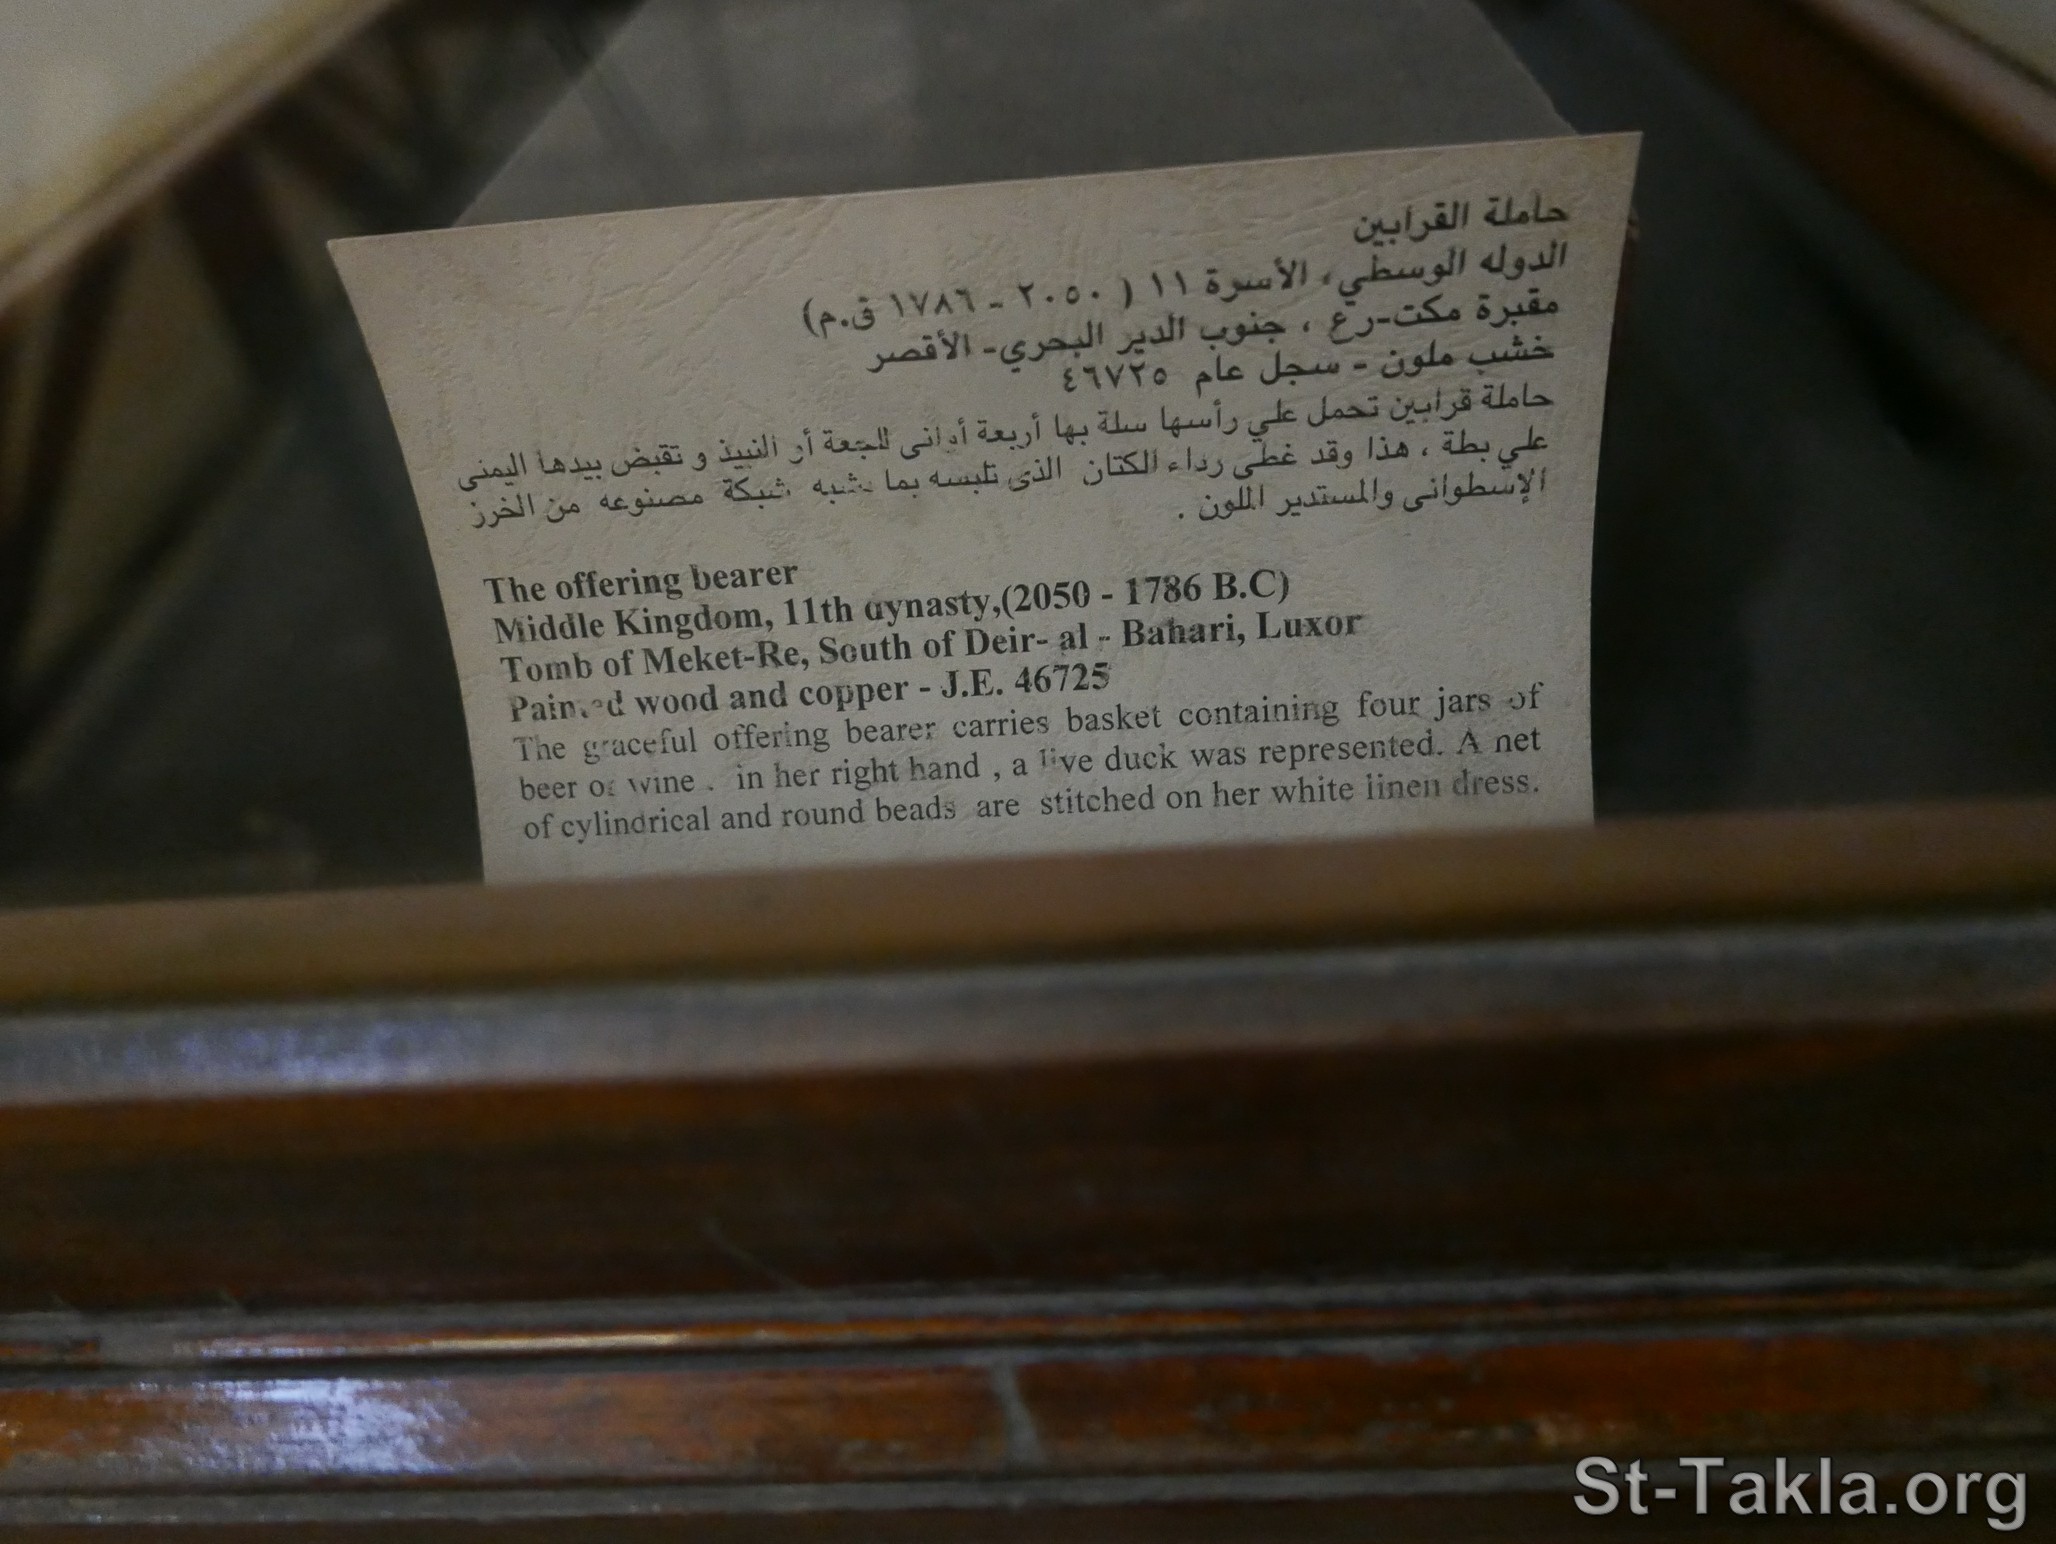 حاملة القرابين
الدوله الوسطي، الأسرة ١١ ( ٢٠٥٠ - ١٧٨٦ ق.م)
مقبرة مكت-رع ، جنوب الدير البحري- الأقصر
خشب ملون - سجل عام ٤٦٧٢٥
حاملة قرابين تحمل علي رأسها سلة بها أربعة أوانى للجعة أو النبيذ و تقبض بيدها اليمنى
علي بطة ، هذا وقد غطى رداء الكتان الذى تلبسه بما يشبه شبكة مصنوعه من الخرز
الإسطوانى والمستدير الملون .
The offering bearer
Middle Kingdom, 11th dynasty,(2050 - 1786 B.C)
Tomb of Meket-Re, South of Deir- al - Bahari, Luxor
Painted wood and copper - J.E. 46725
The graceful offering bearer carries basket containing four jars of
beer or wine . in her right hand , a live duck was represented. A net
of cylindrical and round beads are stitched on her white linen dress.
St-Takla.org